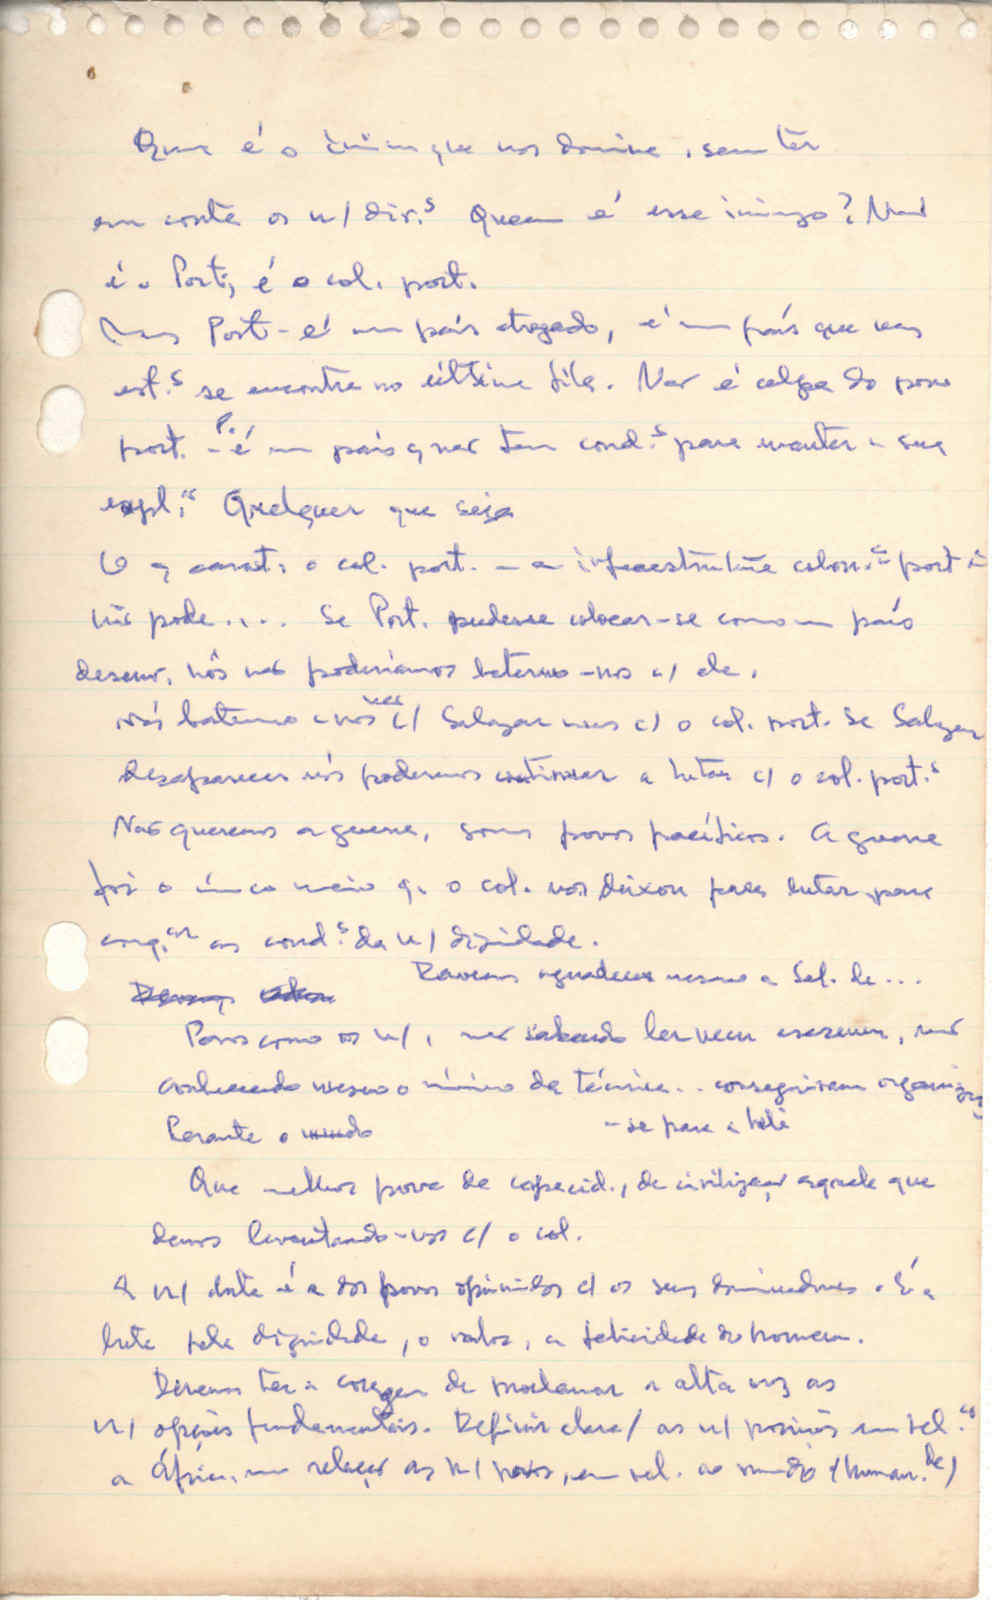 Quem é o inimigo que nos domina, sem ter
em conta os n/ dir.s Quem é esse inimigo? Não
é o Port., é o col. port.
Mas Port - é um país atrazado, é um país que
est.s se encontra na última fila. Não é culpa do povo
port. - P. é um país q não tem cond.s para manter a sua
expl.ão Qualquer que seja
O q caract. o col. port. - a infraestrutura colon.al port.
não pode.... Se Port. pudesse colocar-se como um país
desenv. nós não poderíamos batermo-nos c/ ele.
Nós batemo-nos não c/ Salazar mas c/ o col. port. Se Salazar
desaparecer nós podemos continuar a lutar c/ o col. port.s
Não queremos a guerra, somos povos pacíficos. A guerra
foi o único meio q. o col. nos deixou para lutar para
as cond.s da n/ dignidade.
Devemos agradecer mesmo a Sal. de...
Povos como os n/, não sabendo ler nem escrever, não
conhecendo mesmo o mínimo da técnica.. conseguiram organizar
-se para a luta
Perante o mundo
Que melhor prova de capacid., de civilização aquela que
damos levantando-nos c/ o col.
A n/ luta é a dos povos oprimidos c/ os seus dominadores. É a
luta pela dignidade, o valor, a felicidade do homem.
Devemos ter a coragem de proclamar a alta voz as
n/ opções fundamentais. Definir clara/ as n/ posições em rel.ão
a África, em relação aos n/ povos, em rel. ao mundo (human.de)